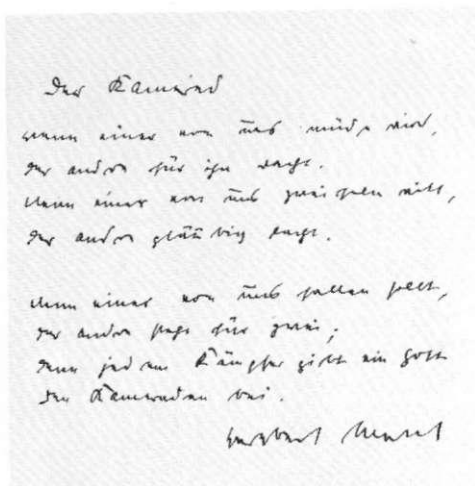 Der Kamerad
Wenn einer von uns müde wird,
der andre für ihn wacht.
Wenn einer von uns zweifeln will,
der andre gläubig lacht.
Wenn einer von uns fallen sollt,
der andre steht für zwei;
denn jedem Kämpfer gibt ein Gott
den Kameraden bei.
Herybert Menzel